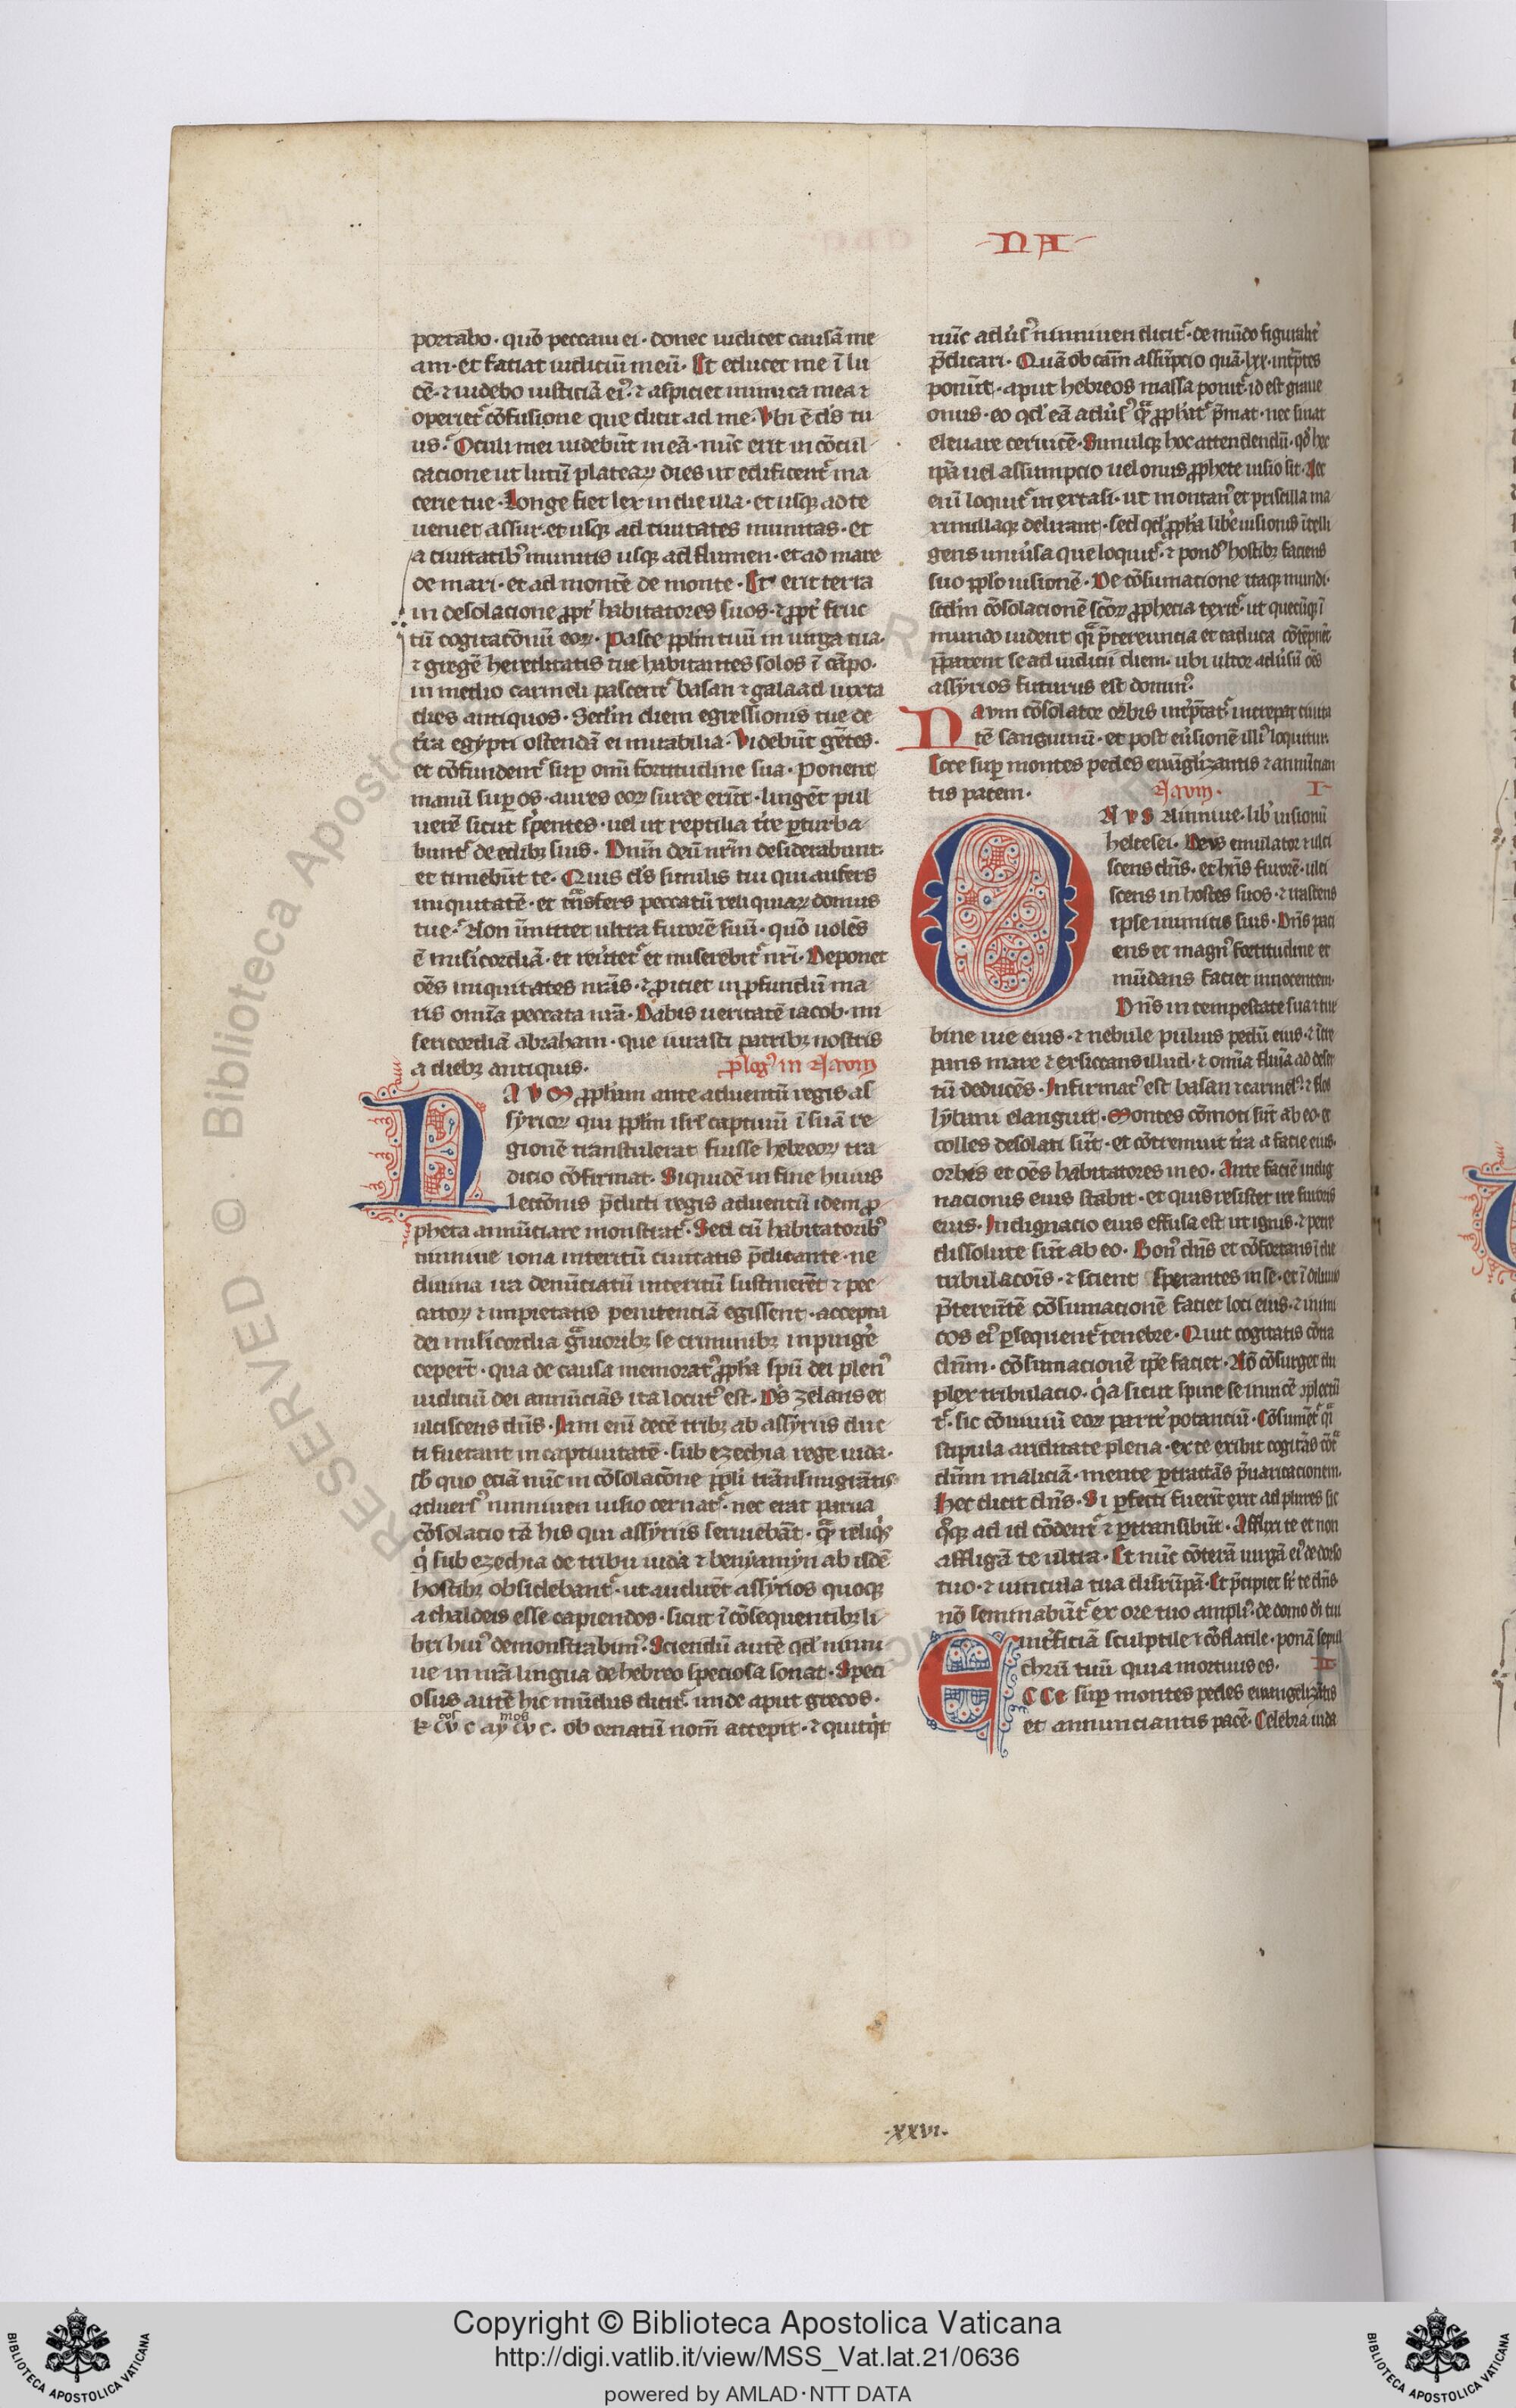 NA
portabo · quō peccaui ei · donec iudicet causā me
am · et faciat iudiciū meū · Et educet me ī lu
cē · ⁊ uidebo iusticiā ei᷒ · ⁊ aspiciet inimica mea ⁊
operiet᷑ cōfusione que dicit ad me · Vbi ē dn̄s tu
us · Oculi mei uidebūt in eā · nūc erit in cōcul
cacione ut lutū plateaꝝ dies ut edificent᷑ ma
cerie tue · Longe fiet lex in die illa · et usqꝫ ad te
ueniet assur · et usqꝫ ad ciuitates munitas · et
a ciuitatibꝰ munitis usqꝫ ad flumen · et ad mare
de mari · et ad montē de monte · Et erit terra
in desolacione ꝓpt̓ habitatores suos · ⁊ ꝓpt̓ fruc
tū cogitacōnū eoꝝ · Pasce pplm̄ tuū in uirga tua ·
⁊ gregē hereditatis tue habitantes solos ī cāpo ·
in medio carmeli pascent᷑ basan ⁊ galaad iuxta
dies antiquos · Scd̓m diem egressionis tue de
t̓ra egypti ostendā ei mirabilia · Videbūt gētes ·
et cōfundent᷑ suꝑ om̄i fortitudine sua · Ponent
manū suꝑ os · aures eoꝝ surde erūt · lingēt pul
uerē sicut s̓pentes · uel ut reptilia t̓re ꝑturba
bunt᷑ de edibꝫ suis · Dn̄m deū nr̄m desiderabunt ·
et timebūt te · Quis ds̄ similis tui qui aufers
iniquitatē · et tn̄sfers peccatū reliquiaꝝ domus
tue · Non īmittet ultra furorē suū · quō uolēs
ē mis̓icordiā · et reu̓tet᷑ et miserebit᷑ nr̄i · Deponet
oēs iniquitates nr̄as · ⁊ ꝓiciet in ꝓfundū ma
ris om̄ia peccata nr̄a · Dabis ueritatē iacob · mi
sericordiā abraham · que iurasti patribꝫ nostris
a diebꝫ antiquis ·
p̄logꝰ in Naum
NAVM ꝓpham ante aduentū regis as
syrioꝝ qui pplm̄ isrl̓ captiuū ī suā re
gionē transtulerat fuisse hebreoꝝ tra
dicio cōfirmat · Siquidē in fine huius
lectōnis p̄dicti regis aduentū idem ꝓ
pheta annūciare monstrat᷑ · Sed cū habitatoribꝰ
niniue iona interitū ciuitatis p̄dicante · ne
diuina ira denūciatū interitū sustinerēt ⁊ pec
catoꝝ ⁊ impietatis penitenciā egissent · accepta
dei mis̓icordia gͣuioribꝫ se criminibꝫ inpinge̓
ceperūt · qua de causa memoratꝰ ꝓpha spū dei plenꝰ
iudiciū dei annūciās ita locutꝰ est · Ds̄ zelans et
ulciscens dn̄s · Iam eni᷑ decē tribꝫ ab assyriis duc
ti fuerant in captiuitatē · sub ezechia rege iuda ·
sb̓ quo eciā nūc in cōsolacōne ppl̓i trāsmigrātis
aduersꝰ niniuen uisio cernat᷑ · nec erat parua
cōsolacio tā his qui assyriis seruiebāt · qͣ reliqͥs
qͥ sub ezechia de tribu iuda ⁊ benyamyn ab isdē
hostibꝫ obsidebant᷑ · ut audirēt assyrios quoqꝫ
a chaldeis esse capiendos · sicut ī cōsequentibꝫ li
bri huiꝰ demonstrabimꝰ · Sciendū autē qd̓ nini
ue in nr̄a lingua de hebreo speciosa sonat · Speci
osus autē hic mūdus dicit᷑ · unde aput grecos ·
ob ornatū nom̄ accepit · ⁊ quitqͥt
nūc adu̓sꝰ niniuen dicit᷑ · de mūdo figuralit̓
p̄dicari · Quā ob cām assūpcio quā · lxx · int̓p̄tes
ponūt · aput hebreos massa ponit᷑ · id est graue
onus · eo qd̓ eā adu̓sꝰ qͣ ꝓphat᷑ p̄mat · nec sinat
eleuare ceruicē · Simulqꝫ hoc attendendū · qd̓ hec
ip̄a uel assumpcio uel onus ꝓphete uisio sit · Nec
eni᷑ loquit᷑ in extasi · ut montanꝰ et priscilla ma
ximillaqꝫ delirant · sed qd̓ ꝓpha libe̓ uisionis ītelli
gens uniu̓sa que loquit᷑ · ⁊ pondꝰ hostibꝫ faciens
suo pplo uisionē · De cōsumacione itaqꝫ mundi ·
scd̓m cōsolacionē scōꝝ ꝓphecia texit᷑ · ut quecūqꝫ ī
mundo uident qͣ p̄tereuncia et caduca cōtēpnēt
p̄parent se ad iudicii diem · ubi ultor adu̓sū oēs
assyrios futurus est dominꝰ ·
Naum cōsolator orbis int̓p̄tat᷑ · increpat ciuita
tē sanguinū · et post eu̓sionē illiꝰ loquitur ·
Ecce suꝑ montes pedes ewāglizantis ⁊ annūcian
tis pacem · Naum · I
ONVS Niniue · lib̓ uisionū
helcesei · Deus emulator ⁊ ulci
scens dn̄s · et hn̄s furorē · ulci
scens in hostes suos · ⁊ irascens
ipse inimicis suis · Dn̄s paci
ens et magnꝰ fortitudine et
mūdans faciet innocentem ·
Dn̄s in tempestate sua ⁊ tur
bine uie eius · ⁊ nebule puluis pedū eius · ⁊ īcre
pans mare ⁊ exsiccans illud · ⁊ om̄ia fluīa ad deser
tū deducēs · Infirmatꝰ est basan ⁊ carmelꝰ · ⁊ flos
lybani elanguit · Montes cōmoti sūt ab eo · ⁊
colles desolati sūt · et cōtremuit t̓ra a facie eius ·
orbis et oēs habitatores in eo · Ante faciē indig
nacionis eius stabit · et quis resistet ire furoris
eius · Indignacio eius effusa est ut ignis · ⁊ petre
dissolute sūt ab eo · Bonꝰ dn̄s et cōfortans ī die
tribulacōis · ⁊ scient sperantes in se · et ī diluuio
p̄tereūtē cōsumacionē faciet loci eius · ⁊ inimi
cos eiꝰ ꝑsequent᷑ tenebre · Quit cogitatis cōtra
dn̄m · cōsumacionē ip̄e faciet · Nō cōsurget du
plex tribulacio · qͥa sicut spine se inuicē ꝯplectū
t᷑ · sic cōuiuiū eoꝝ parit̓ potanciū · Cōsument᷑ qͣ
stipula ariditate plena · ex te exibit cogitās cōtͣ
dn̄m maliciā · mente ꝑtractās p̄uaricacionem ·
Hec dicit dn̄s · Si ꝑfecti fuerīt erūt ad plures sic
qͦqꝫ ad id tōdent᷑ ⁊ ꝑtransibūt · Afflixi te et non
affligā te ultra · Et nūc cōterā uirgā eiꝰ de dorso
tuo · ⁊ uincula tua disrūpā · Et p̄cipiet sr̄ te dn̄s ·
nō seminabūt᷑ ex ore tuo ampliꝰ · de domo di̓ tui
int̓ficiā sculptile ⁊ cōflatile · ponā sepul
chrū tuū quia mortuus es · II
ECCe suꝑ montes pedes euuangelizātis
et annunciantis pacē · Celebra iuda
· xxvi ·
RESERVED © Biblioteca Apostolica Vaticana
Copyright © Biblioteca Apostolica Vaticana
http://digi.vatlib.it/view/MSS_Vat.lat.21/0636
powered by AMLAD·NTT DATA
BIBLIOTECA APOSTOLICA VATICANA
BIBLIOTECA APOSTOLICA VATICANA